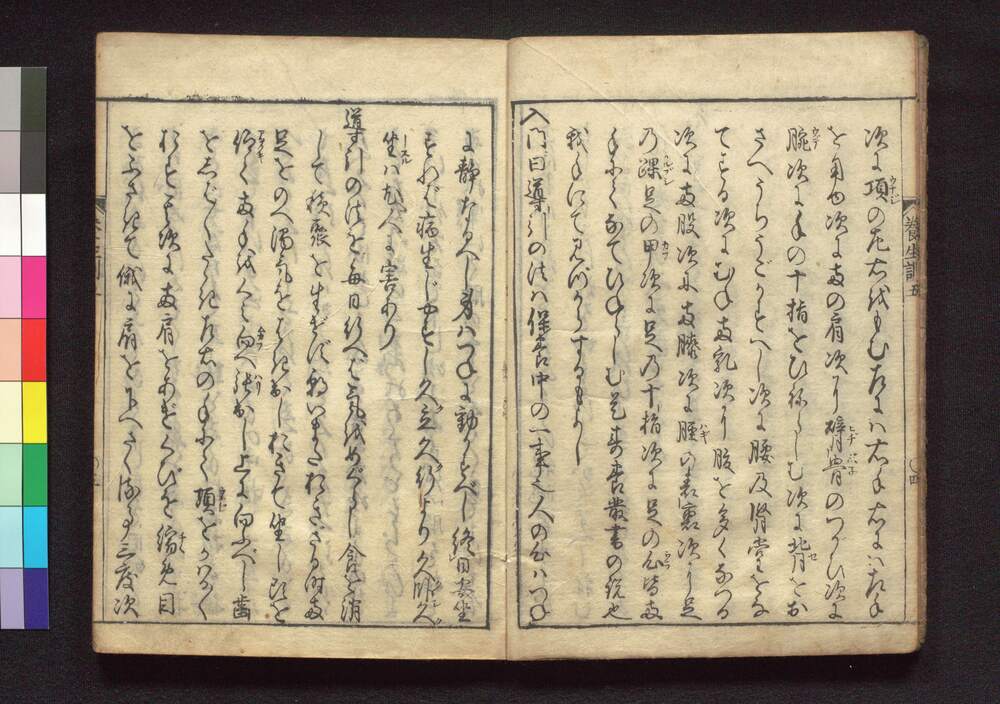 次に項の左右をもむ左には右手右には左手
を用ゆ次に両の肩次に臂骨のつがひ次に
腕次に手の十指をひねらしむ次に背をお
さへうちうごかすべし次に腰及腎堂をな
でさする次にむね両乳次に腹を多くなづる
次に両股次に両膝次に脛の表裏次に足
乃踝足の甲次に足乃十指次に足の心皆両
手にてなでひねらしむ是寿養叢書の説也
我手にてみづからするもよし
入門曰導引の法ハ保養中の一事也人の心ハつねに
養生訓五
〇四
に静なるべし身ハつねに動かすべし終日安坐
すれば病生じやすし久立久行より久臥久
坐ハ尤人に害あり
導引の法を毎日行へば気をめぐらし食を消
して積聚を生ぜず朝いまだおきざる時両
足をのべ濁気をはき出しおきて坐し頭を
仰て両手をくミ向へ張出し上に向ふべし歯
をしば〱たゝき左右の手にて項をかはる〲
おす其次に両肩をあげくびを縮め目
をふさぎて俄に肩を下へさぐる事三度次